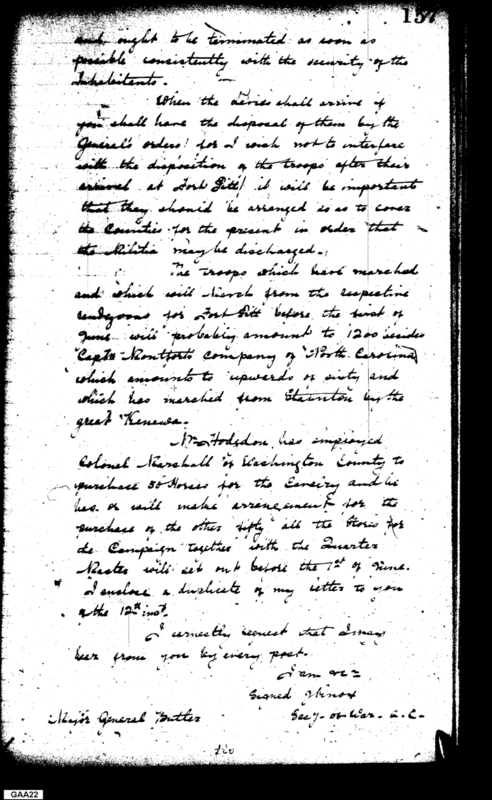 157
and ought to be terminated as soon as
possible consistently with the security of the
Inhabitants.
When the Levies shall arrive if
you shall have the disposal of them by the
General's orders (for I wish not to interfere
with the disposition of the troops after their
arrival at Fort Pitt) it will be important
that they should be arranged so as to cover
the Counties for the present in order that
the Militia may be discharged.
The troops which have marched
and which will March from the respective
rendezvous for Fort Pitt before the first of
June will probably amount to 1200 besides
Captn Montforts Company of North Carolina,
which amounts to upwards of sixty and
which has marched from Staunton by the
great Kenewa.
Mr Hodgdon has employed
Colonel Marshall of Washington County to
purchase 50 Horses for the Cavalry and he
has or will make arrangement for the
purchase of the other fifty all the Stores for
de Campaign together with the Quarter
Master will set out before the 1st of June.
I enclose a duplicate of my letter to you
of the 12th inst.
I earnestly request that I may
hear from you by every post.
I am &c
Signed HKnox
Secy. of War. &.c.
Major General Butler
GAA22